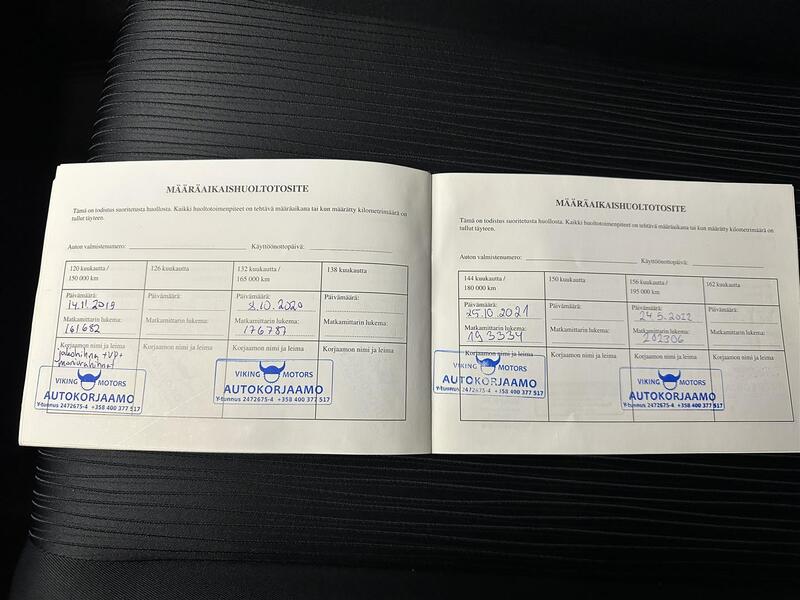 MÄÄRÄAIKAISHUOLTOTOSITE
Tämä on todistus suoritetusta huollosta. Kaikki huoltotoimenpiteet on tehtävä määräaikana tai kun määrätty kilometrimäärä on
tullut täyteen.
Auton valmistenumero: Käyttöönottopäivä:
120 kuukautta / 126 kuukautta 132 kuukautta / 138 kuukautta
150 000 km 165 000 km
Päivämäärä: Päivämäärä: Päivämäärä: Päivämäärä:
14.11.2019 8.10.2020
Matkamittarin lukema: Matkamittarin lukema: Matkamittarin lukema: Matkamittarin lukema:
161682 176787
Korjaamon nimi ja leima Korjaamon nimi ja leima Korjaamon nimi ja leima Korjaamon nimi ja leima
jakohihna +VP+
VIKING MOTORS VIKING MOTORS
AUTOKORJAAMO AUTOKORJAAMO
Y-tunnus 2472675-4 +358 400 377 517 Y-tunnus 2472675-4 +358 400 377 517
MÄÄRÄAIKAISHUOLTOTOSITE
Tämä on todistus suoritetusta huollosta. Kaikki huoltotoimenpiteet on tehtävä määräaikana tai kun määrätty kilometrimäärä on
tullut täyteen.
Auton valmistenumero: Käyttöönottopäivä:
144 kuukautta / 150 kuukautta 156 kuukautta / 162 kuukautta
180 000 km 195 000 km
Päivämäärä: Päivämäärä: Päivämäärä: Päivämäärä:
25.10.2021 24.5.2022
Matkamittarin lukema: Matkamittarin lukema: Matkamittarin lukema: Matkamittarin lukema:
193334 202306
Korjaamon nimi ja leima Korjaamon nimi ja leima Korjaamon nimi ja leima Korjaamon nimi ja leima
VIKING MOTORS VIKING MOTORS
AUTOKORJAAMO AUTOKORJAAMO
Y-tunnus 2472675-4 +358 400 377 517 Y-tunnus 2472675-4 +358 400 377 517